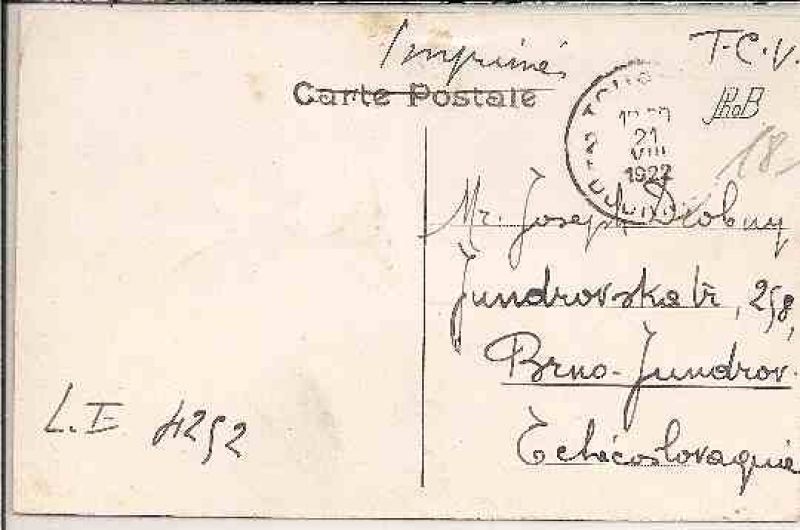 Imprimés
T.C.V.
Carte Postale
21
VIII
1922
18
Mr. Joseph Drobny
Jundrovska tř, 258,
Brno-Jundrov.
Tchécoslovaquie
L.I 4252